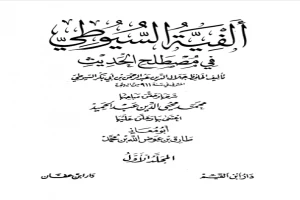 ألفية السيوطي
في مصطلح الحديث
تأليف الحافظ جلال الدين عبد الرحمن بن أبي بكر السيوطي
المتوفى سنة ٩١١
محمد محيي الدين عبد الحميد
أبو معاذ
طارق بن عوض الله بن محمد
المجلد الأول
دار ابن القيم
دار ابن عفان